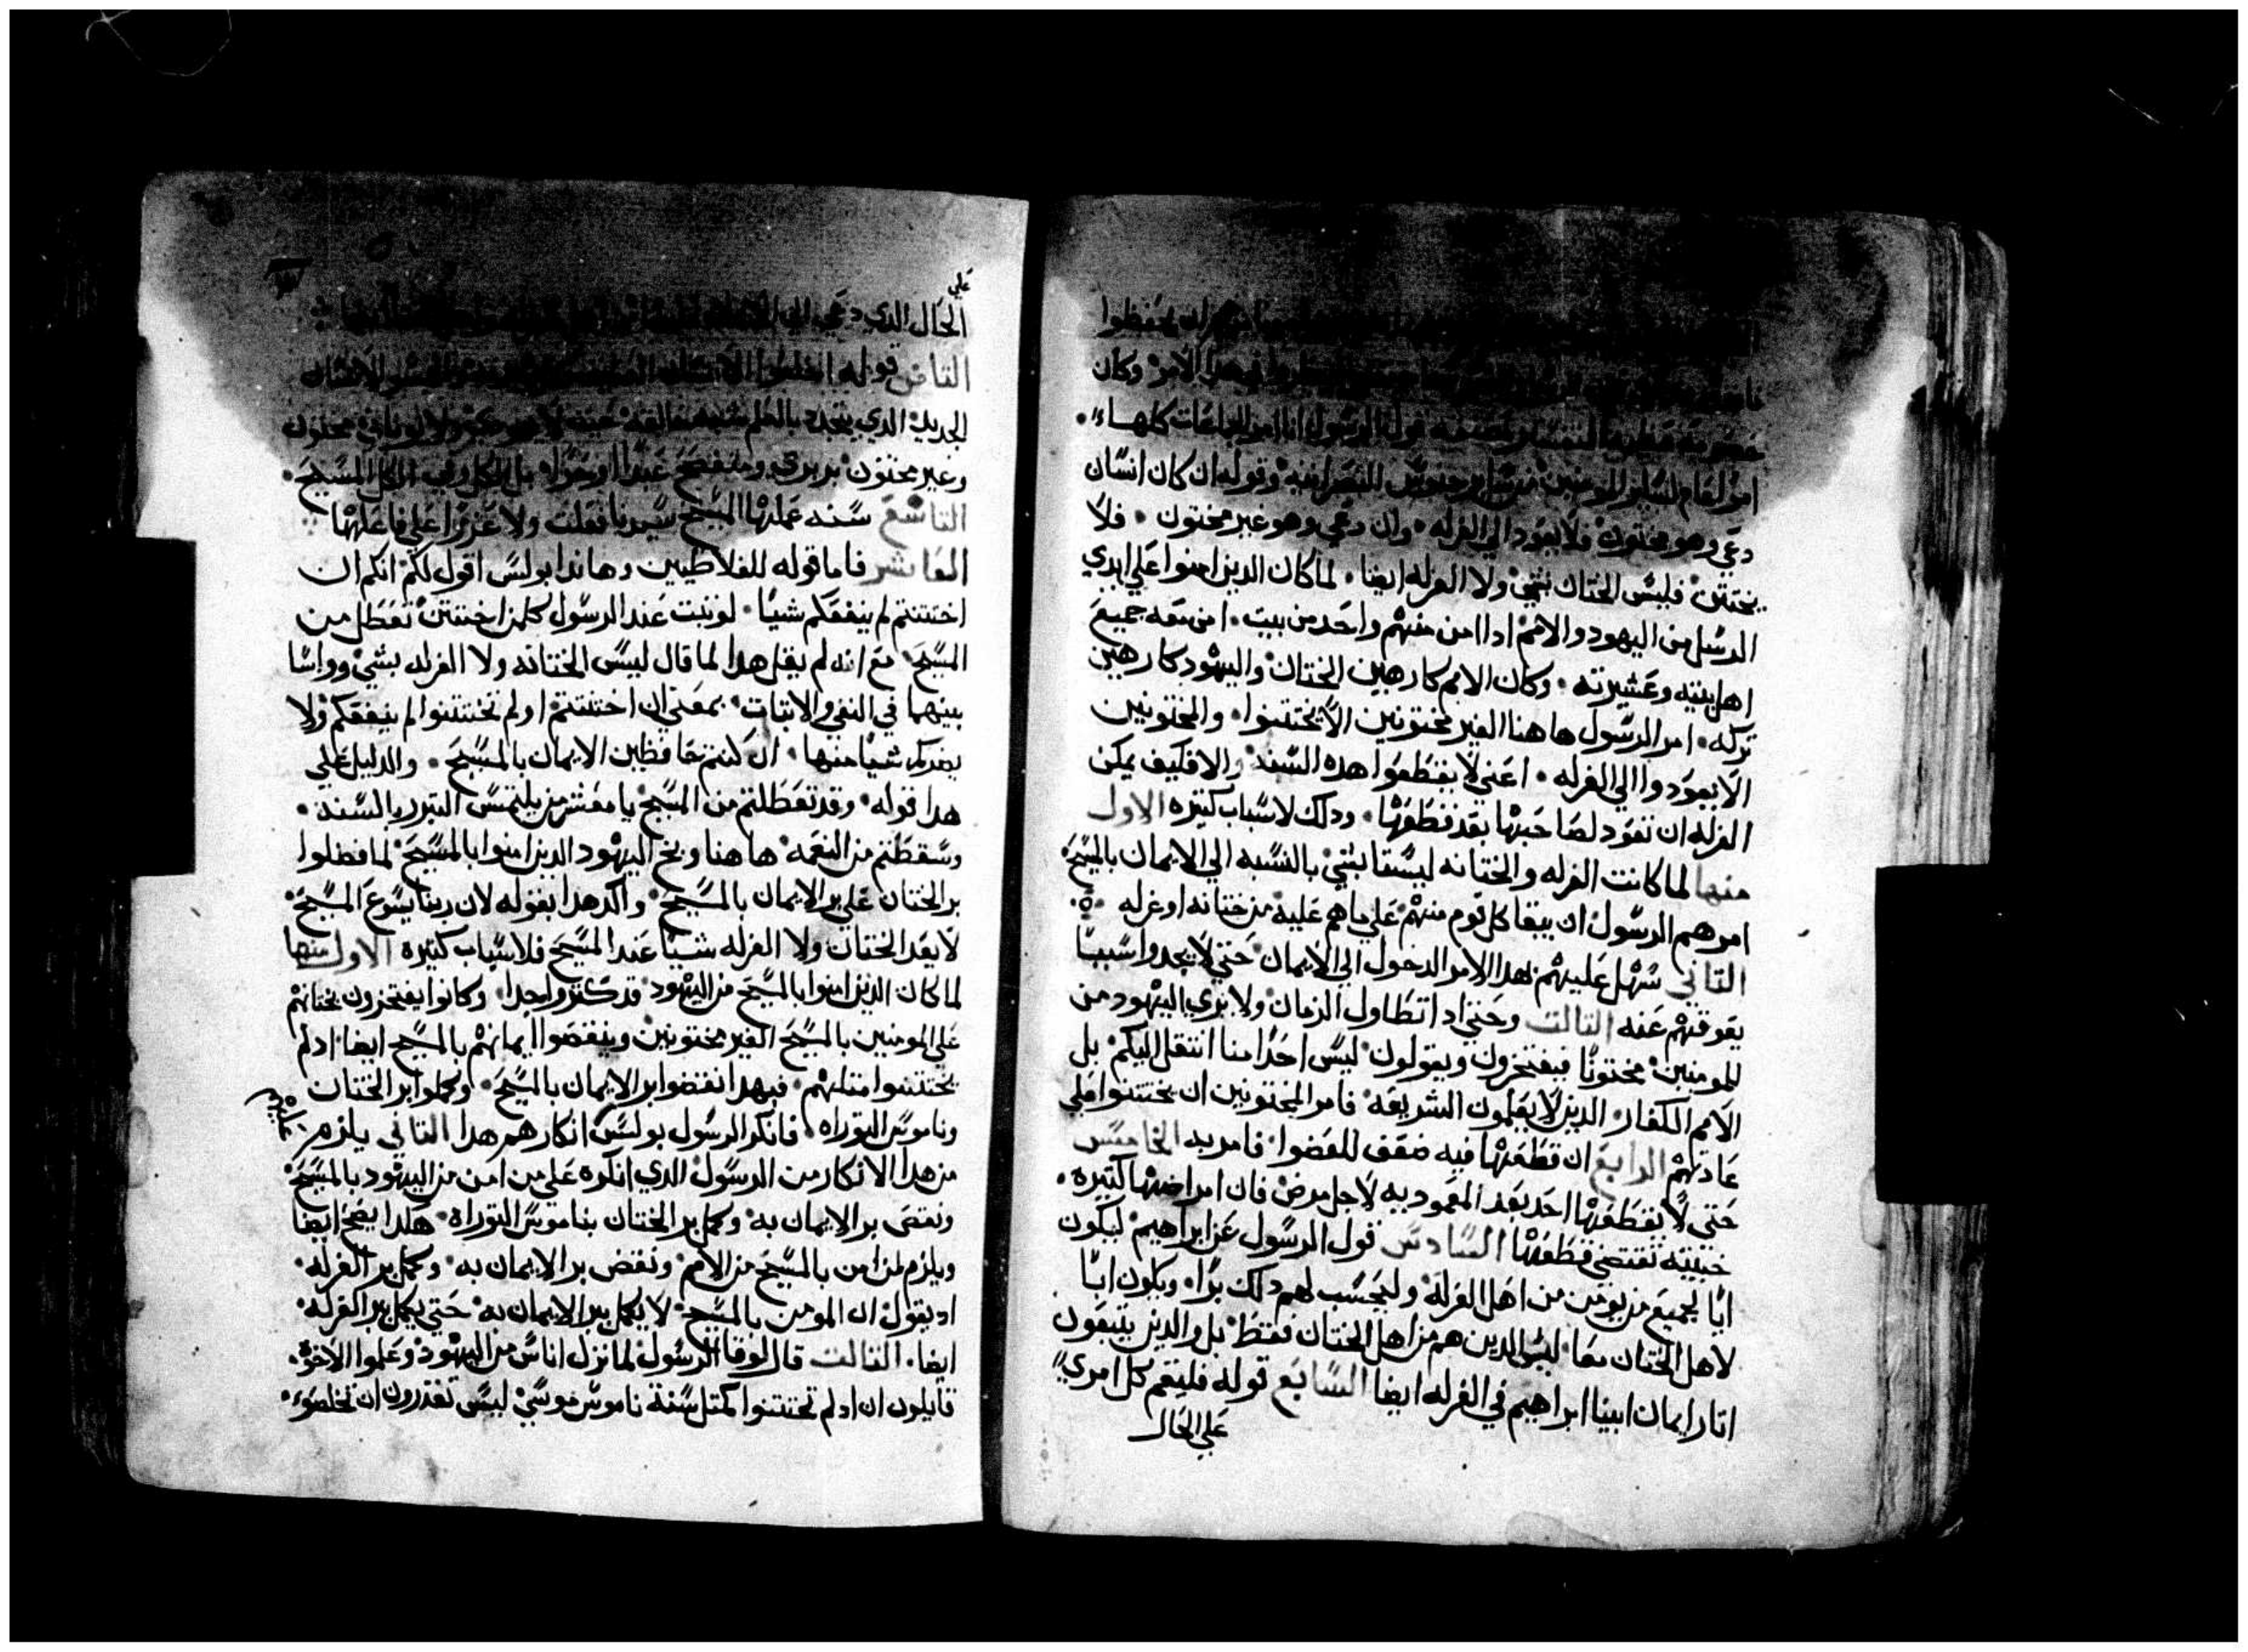 يحفظوا
في هدا الامر وكان
قوله الرسول انا امر الجماعات كلها
وقوله ان كان انسان
دعي وهو مختون فلا يعود الي الغرله • وان دعي وهو غير مختون • فلا
يختتن فليس الختان بشي ولا الغرله ايضا • لما كان الدين امنوا علي ايدي
الرسل من اليهود والامم ادا امن منهم واحد من بيت • امن معه جميع
اهل بيته وعشيرته • وكان الامم كارهين الختان واليهود كارهين
تركه • امر الرسول هاهنا الغير مختونين الا يختتنوا • والمختونين
الا يعودوا الي الغرله • اعني لا يقطعوا هده السنه والا فكيف يمكن
الغرله ان تعود لصاحبها بعد قطعها • ودلك لاسباب كتيره الاول
منها لما كانت الغرله والختانه ليستا بشي بالنسبه الي الايمان بالمسيح
امرهم الرسول ان يبقا كل قوم منهم علي ما هم عليه من ختانه او غرله
التاني سهل عليهم بهدا الامر الدخول الي الايمان حتي لا يجدوا سببا
يعوقهم عنه التالت وحتي ادا تطاول الزمان ولا يري اليهود من
المومنين مختونا فيفتخرون ويقولون ليس احدا منا انتقل اليكم بل
الامم الكفار الدين لا يعلمون الشريعه فامر المختونين ان يختتنوا علي
عادتهم الرابع ان قطعها فيه ضعف للعضوا فامر به الخامس
حتي لا يقطعها احد بعد المعموديه لاجل مرض فان امراضها كتيره •
خبيته تقتضي قطعها السادس قول الرسول عن ابراهيم ليكون
ابا لجميع من يومن من اهل الغرله وليحسب لهم دلك برا • ويكون ابا
لاهل الختان معا ليس الدين هم من اهل الختان فقط بل والدين يتبعون
اتار ايمان ابينا ابراهيم في الغرله ايضا السابع قوله فليقم كل امري
علي الحال
علي
الحال الدي دعي الي
التامن قوله اخلعوا الانسان
الجديد الدي يتجدد بالعلم بشبه خالقه حيت لا يهودي ولا يوناني مختون
وغير مختون بربري عبدا او حرا بل الكل وفي الكل المسيح •
التاسع سنه عملها المسيح سيدنا فعلت ولا عزرا علي فاعلها
العاشر فاما قوله للغلاطيين وهاندا بولس اقول لكم انكم ان
اختتنتم لم ينفعكم شيا • لو تبت عند الرسول كلمن اختتن تعطل من
المسيح • مع انه لم يقل هدا لما قال ليس الختانه ولا الغرله بشي وواسا
بينهما في النفي والاتبات • بمعني ان اختتنتم او لم تختتنوا لم ينفعكم ولا
يضركم شيا منها • ان كنتم حافظين الايمان بالمسيح • والدليل علي
هدا قوله • وقد تعطلتم من المسيح يا معشر من يلتمس التبرر بالسنه •
وسقطتم من النعمه • هاهنا وبخ اليهود الدين امنوا بالمسيح لما فضلوا
بر الختان علي بر الايمان بالمسيح • واكد هدا بقوله لان ربنا يسوع المسيح •
لا يعد الختان ولا الغرله شيا عند المسيح فلاسباب كتيره الاول منها
لما كان الدين امنوا بالمسيح من اليهود قد كتروا جدا • وكانوا يفتخرون بختانهم
علي المومنين بالمسيح الغير مختونين وينقضوا ايمانهم بالمسيح ايضا ادلم
يختتنوا متلهم • فبهدا انقضوا بر الايمان بالمسيح • وكملوا بر الختان
وناموس التوراه • فانكر الرسول بولس انكارهم هدا التاني يلزم
عليهم
من هدا الانكار من الرسول الدي انكره علي من امن من اليهود بالمسيح
ونقص بر الايمان به • وكمل بر الختان بناموس التوراه • هكدا يصح ايضا
ويلزم لمن امن بالمسيح من الامم • ونقض بر الايمان به • وكمل بر الغرله •
اد يقول ان المومن بالمسيح • لا يكمل بر الايمان به • حتي يكمل بر الغرله •
ايضا • التالت قال لوقا الرسول لما نزل اناس من اليهود وعلموا الاخوه •
قايلون ان ادلم تختتنوا كمتل سنة ناموس موسي ليس تقدرون ان تخلصوا •